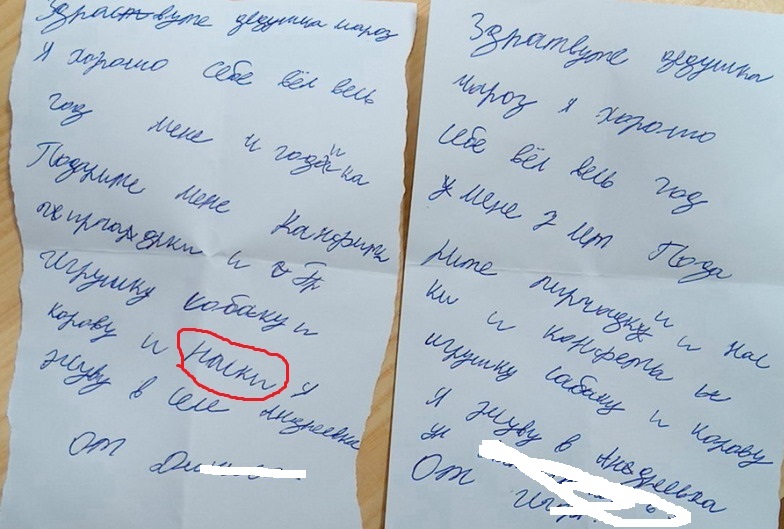 Здраствуте дедушка мароз
Я хорошо себе вёл весь
год мене и годика
Подрите мене Канфиты
и
Игрушку собаку и
корову и наски я
жуву в селе Андреевка
От
Здратвуте дедушка
мароз я хорошо
себе вёл весь год
у мене 7 лет Пода
рите пирчадку и и нас
ки и конфеты и
игрушку сабаку и корову
Я жуву в Андреевка
От